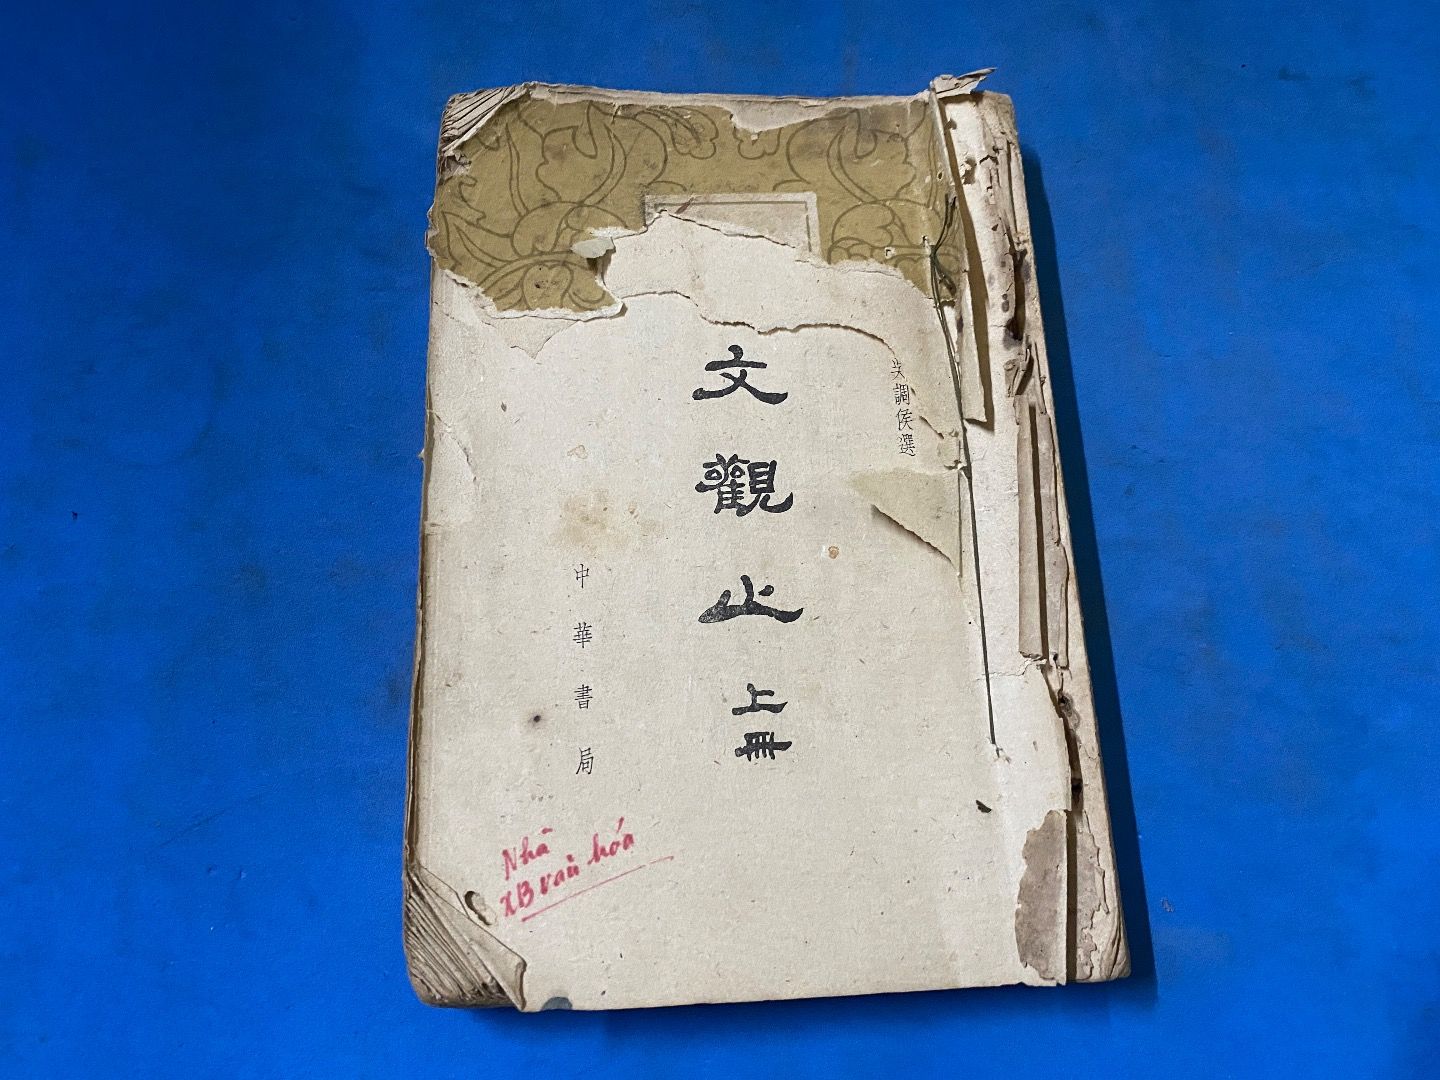 調侯選
文觀止 上冊
中華書局
Nhà
XB văn hóa